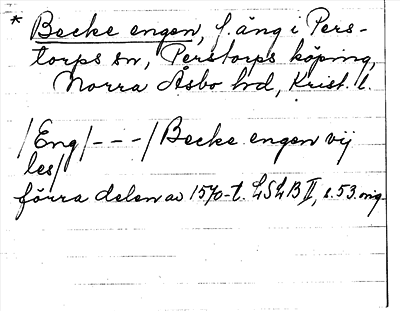 * Becke engen, f. äng i Pers-
torps sn, Perstorps köping,
Norra Åsbo hd, Krist. l.
/Eng/ - - - / Becke engen vij
les/
förra delen av 1570-t. LSLB II, s. 53. orig.